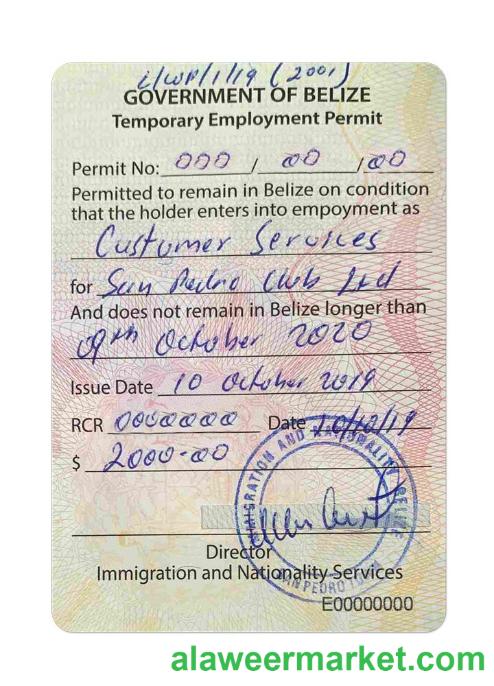 i/WP/1/19 (2001)
GOVERNMENT OF BELIZE
Temporary Employment Permit
Permit No: 000 / 00 / 00
Permitted to remain in Belize on condition
that the holder enters into empoyment as
Customer Services
for San Pedro Club Ltd
And does not remain in Belize longer than
09th October 2020
Issue Date 10 October 2019
RCR 0000000 Date 10/10/19
$ 2000-00
IMMIGRATION AND NATIONALITY BELIZE
SAN PEDRO
Director
Immigration and Nationality Services
E00000000
alaweermarket.com